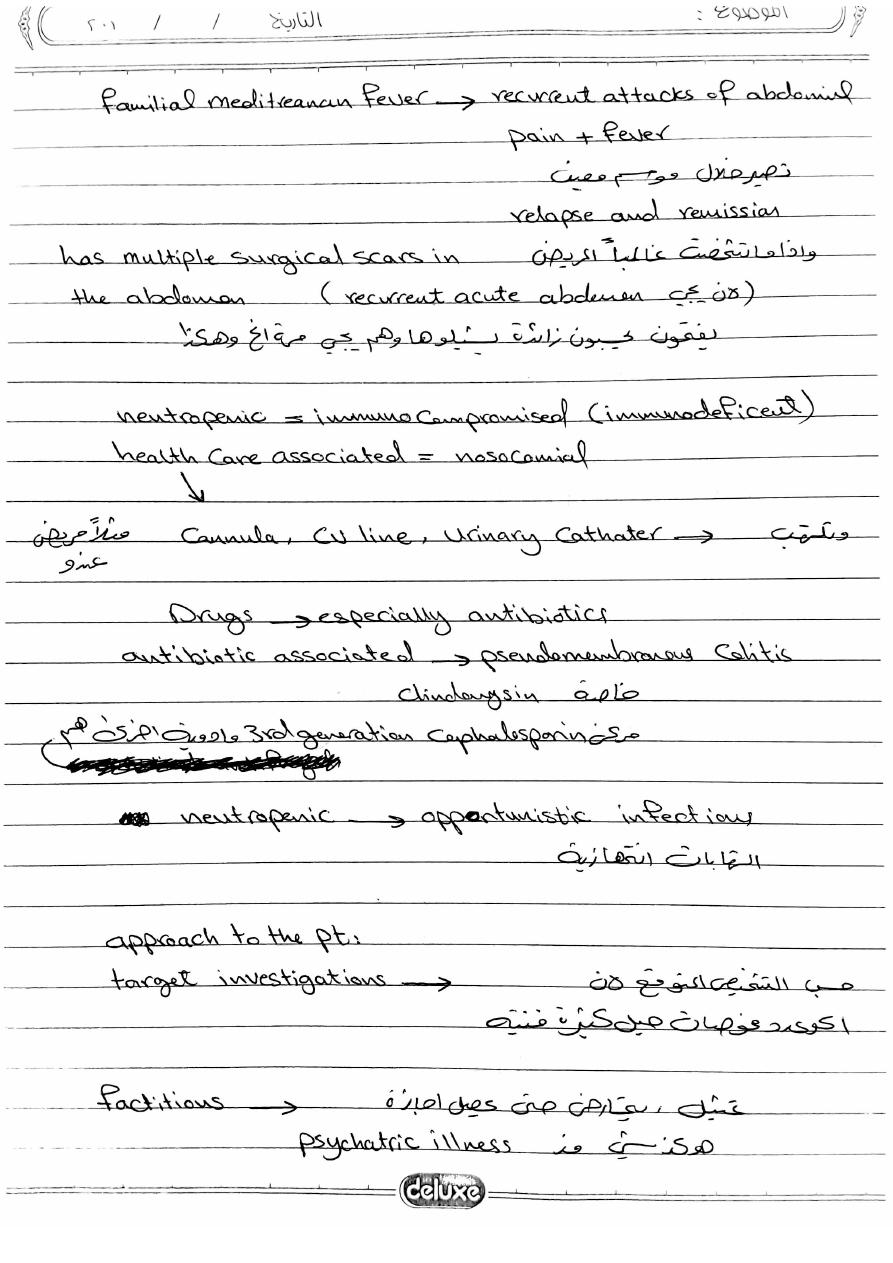 الموضوع : التاريخ / / ٢٠١
familial meditreanan fever → recurrent attacks of abdominl
pain + fever
تصير خلال موسم معين
relapse and remission
واذا ما تشخصت غالباً المريض has multiple surgical scars in
the abdomen (لان يجي recurrent acute abdomen)
يفتحون يحسبون زائدة يشيلوها وهم يجي مرة اخ وهكذا
neutropenic = immunocompromised (immunodeficent)
health care associated = nosocomial
↓
مثلاً مريض عندو Cannula, CV line, Urinary Cathater → وتلتهب
Drugs → especially antibiotics
antibiotic associated → pseudomembranous Colitis
خاصة Clindamysin
ممكن 3rd generation Cephalosporin وادوية اخرى هم
neutropenic → opportunistic infections
التهابات انتهازية
approach to the pt:
target investigations → حسب التشخيص المتوقع لان
اكو عدد فحوصات هيل كثيرة
factitious → تمثيل، يتمارض حتى يحصل اجازة
هكذ شي psychatric illness
deluxe